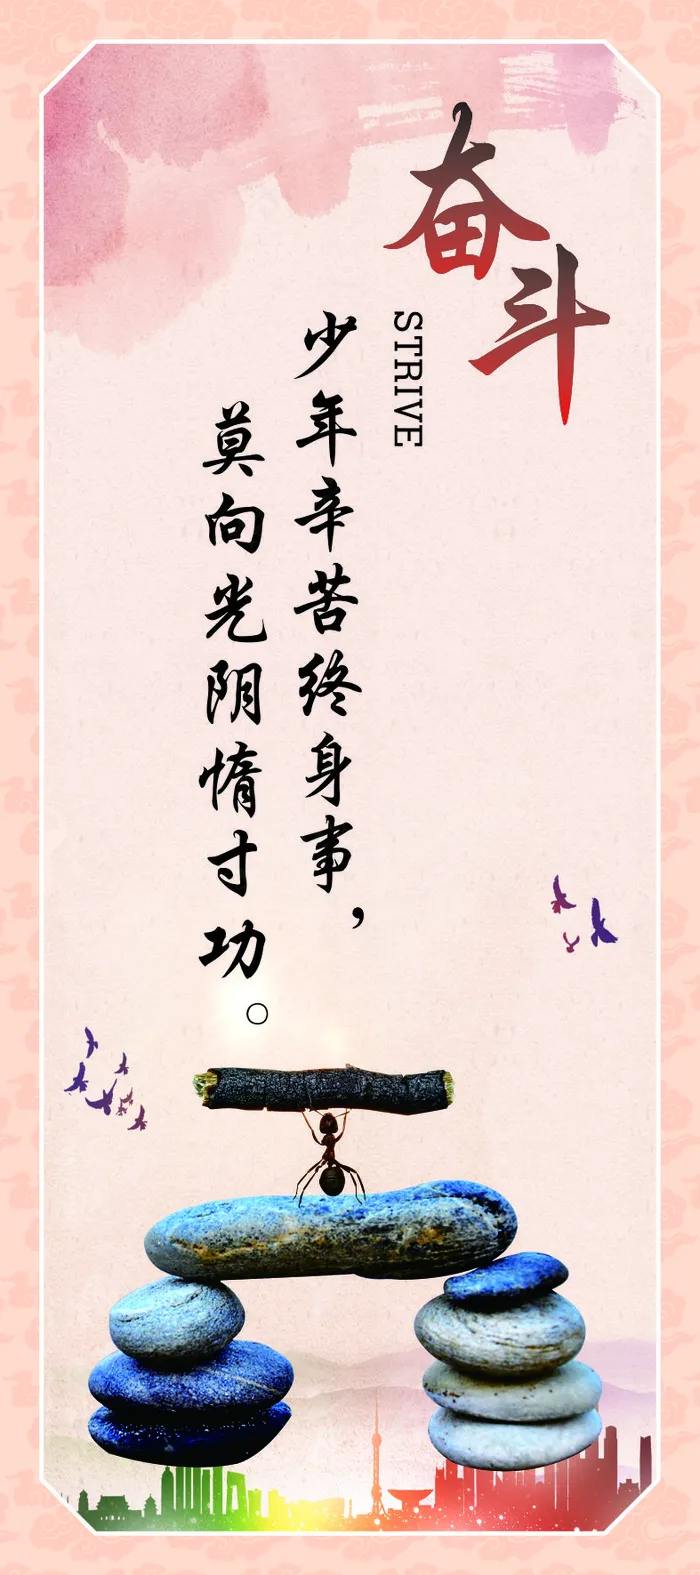 奋斗
STRIVE
少年辛苦终身事，
莫向光阴惰寸功。